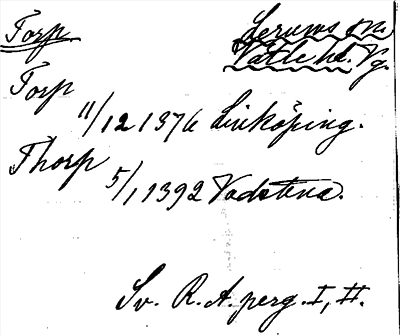 Torp Lerums sn.
Vättle hd. Vg.
Torp
11/12 1376 Linköping.
Thorp
5/1 1392 Vadstena.
Sv. R. A. perg. I, II.